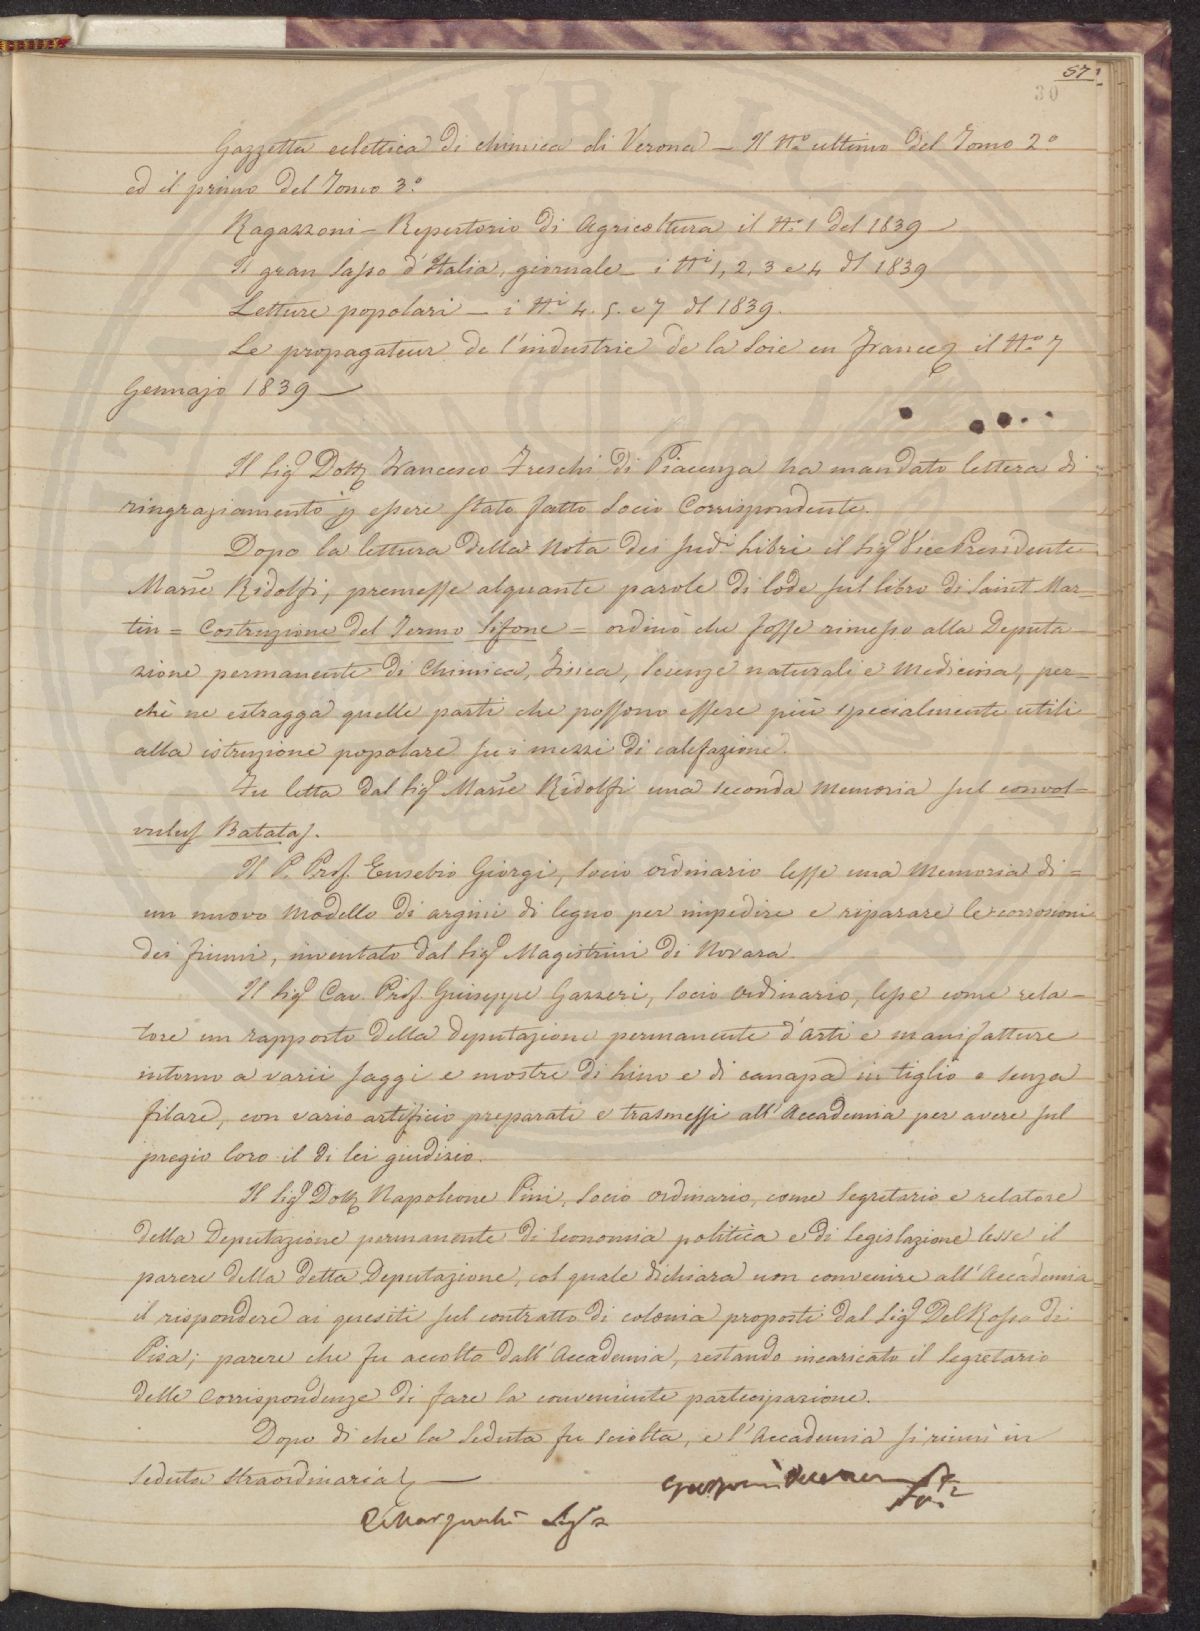 57
30
Gazzetta eclettica di chimica di Verona – Il N.º ultimo del Tomo 2.º
ed il primo del Tomo 3.º
Ragazzoni – Repertorio di Agricoltura il N.º 1 del 1839 –
Il gran Sasso d'Italia, giornale – i N.i 1, 2, 3 e 4 del 1839
Letture popolari – i N.i 4. 5. e 7 del 1839.
Le propagateur de l'industrie de la Soie en France il N.º 7
Gennajo 1839 –
Il Sig.r Dott. Francesco Freschi di Piacenza ha mandato lettera di
ringraziamento p essere stato fatto Socio Corrispondente.
Dopo la lettura della Nota dei sud.i Libri il Sig.r Vice Presidente
Marse Ridolfi, premesse alquante parole di lode sul libro di Saint Mar=
tin = Costruzione del Termo Sifone = ordinò che fosse rimesso alla Deputa=
zione permanente di Chimica, Fisica, Scienze naturali e Medicina, per=
chè ne estragga quelle parti che possono essere più specialmente utili
alla istruzione popolare su i mezzi di calefazione.
Fu letta dal Sig.r Marse Ridolfi una seconda Memoria sul convol=
vulus Batatas.
Il P. Prof. Eusebio Giorgi, Socio ordinario lesse una Memoria di=
un nuovo modello di argini di legno per impedire e riparare le corrosioni
dei fiumi, inventato dal Sig.r Magistrini di Novara.
Il Sig.r Cav. Prof. Giuseppe Gazzeri, Socio ordinario, lesse come rela=
tore un rapporto della deputazione permanente d'Arti e manifatture
intorno a varii saggi e mostre di Lino e di canapa in tiglio o senza
filare, con vario artificio preparati e trasmessi all'Accademia per avere sul
pregio loro il di lei giudizio.
Il Sig.r Dott. Napoleone Pini, Socio ordinario, come Segretario e relatore
della Deputazione permanente di Economia politica e di legislazione lesse il
parere della detta Deputazione, col quale dichiara non convenire all'Accademia
il rispondere ai quesiti sul contratto di colonia proposti dal Sig.r Del Rosso di
Pisa; parere che fu accolto dall'Accademia, restando incaricato il Segretario
delle Corrispondenze di fare la conveniente partecipazione.
Dopo di che la Seduta fu sciolta, e l'Accademia si riunì in
Seduta straordinaria –